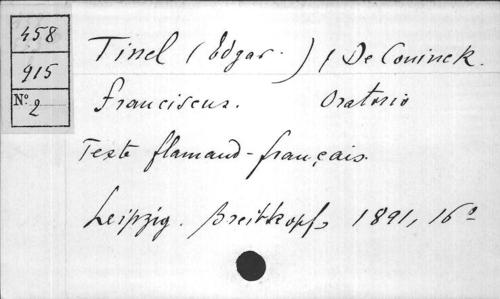 458
915
No. 2
Tinel (Edgar.) / De Coninck.
Franciscus. Oratorio
Texte flamand-français.
Leipzig. Breitkopf, 1891, 16°